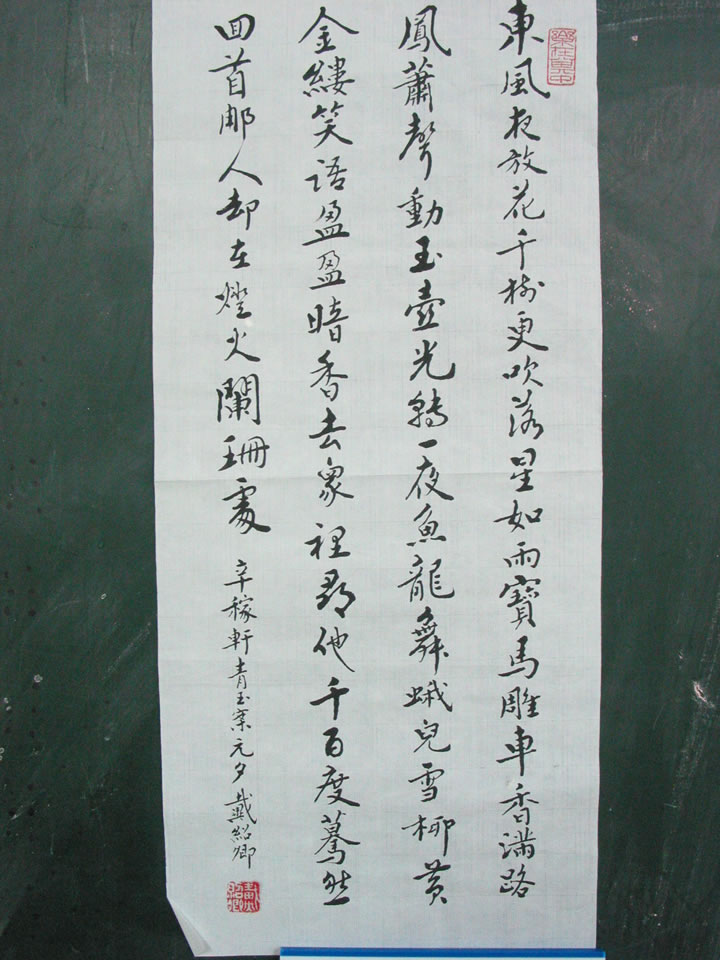 樂在其中
東風夜放花千樹更吹落星如雨寶馬雕車香滿路
鳳蕭聲動玉壺光轉一夜魚龍舞蛾兒雪柳黄
金縷笑語盈盈暗香去衆裡尋他千百度驀然
回首那人却在燈火闌珊處
辛稼軒青玉案元夕 戴紹卿